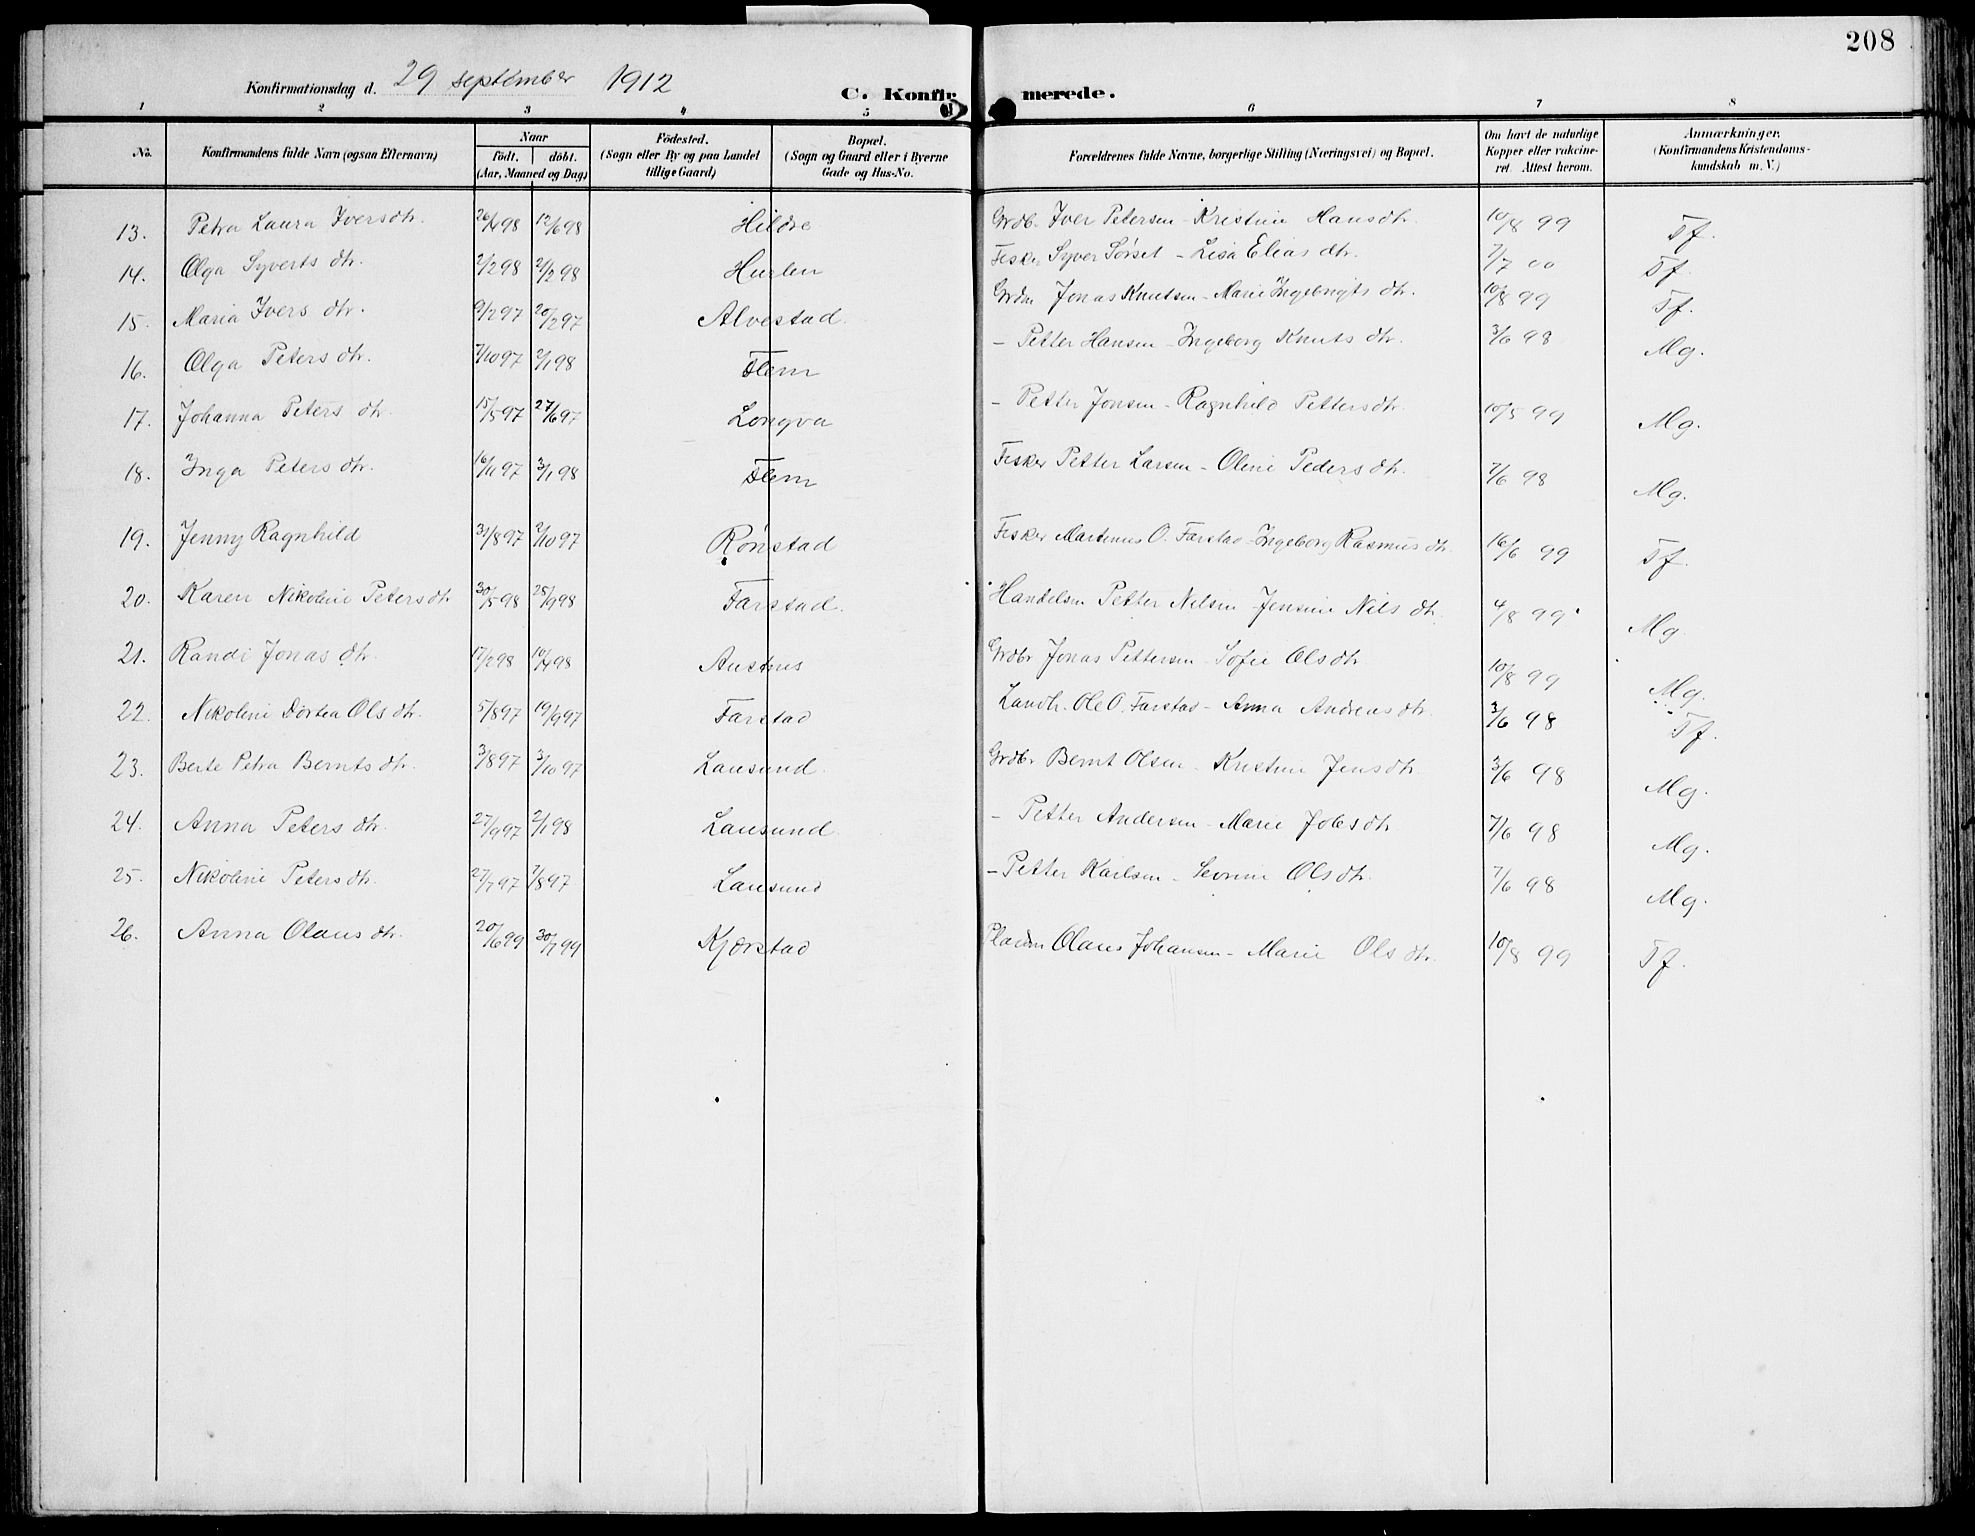 208
Konfirmationsdag d. 29 september 1912
C. Konfirmerede.
1 2 3 4 5 6 7 8
No. Konfirmandens fulde Navn (ogsaa Efternavn) Naar født. døbt. (Aar, Maaned og Dag) Födested. (Sogn eller By og paa Landet tillige Gaard) Bopæl. (Sogn og Gaard eller i Byerne Gade og Hus-No. Forældrenes fulde Navne, borgerlige Stilling (Næringsvei) og Bopæl. Om havt de naturlige Kopper eller vakcineret. Attest herom. Anmærkninger. (Konfirmandens Kristendomskundskab m. V.)
13. Petra Laura Iversdtr. 26/4 98 12/6 98 Hildre Grdb. Iver Petersen - Kristine Hansdtr. 10/8 99 Tf.
14. Olga Syverts dtr. 2/2 98 2/2 98 Hurlen Fisker Syver Sørset - Lisa Elias dtr. 7/7 00 Tf.
15. Maria Ivers dtr. 9/2 97 20/2 97 Alvestad. Grdm Jonas Knutsen - Marie Ingebrigts dtr. 10/8 99 Tf.
16. Olga Peters dtr. 7/10 97 2/1 98 Flem - Petter Hansen - Ingeborg Knuts dtr. 3/6 98 Mg.
17. Johanna Peters dtr. 15/5 97 27/6 97 Longva - Petter Jonsen - Ragnhild Pettersdtr. 10/5 99 Mg.
18. Inga Peters dtr. 16/11 97 3/1 98 Flem Fisker Petter Larsen - Oline Peders dtr. 7/6 98 Mg.
19. Jenny Ragnhild 31/8 97 2/10 97 Rønstad Fisker Martinus O. Farstad - Ingeborg Rasmus dtr. 16/6 99 Tf.
20. Karen Nikoline Peters dtr 30/5 98 25/9 98 Farstad. Handelsm Petter Nilsen - Jensine Nils dtr. 4/8 99 Mg.
21. Randi Jonas dtr. 17/2 98 10/4 98 Austnes Grdbr Jonas Pettersen - Sofie Olsdtr 10/8 99 Mg.
22. Nikoline Dortea Ols dtr. 5/8 97 19/9 97 Farstad Landh. Ole O. Farstad - Anna Andreas dtr. 3/6 98 Tf.
23. Berte Petra Bernts dtr. 3/8 97 3/10 97 Lausund. Grdbr Bernt Olsen - Kristine Jensdtr. 3/6 98 Mg.
24. Anna Peters dtr. 27/9 97 2/1 98 Lausund. - Petter Andersen - Marie Jobsdtr 7/6 98 Mg.
25. Nikoline Peters dtr. 27/7 97 7/8 97 Lausund - Petter Karlsen - Sevrine Olsdtr. 7/6 98 Mg.
26. Anna Olaus dtr. 20/6 99 30/7 99 Kjørstad Pladsm Olaus Johansen - Marie Ols dtr. 10/8 99 Tf.